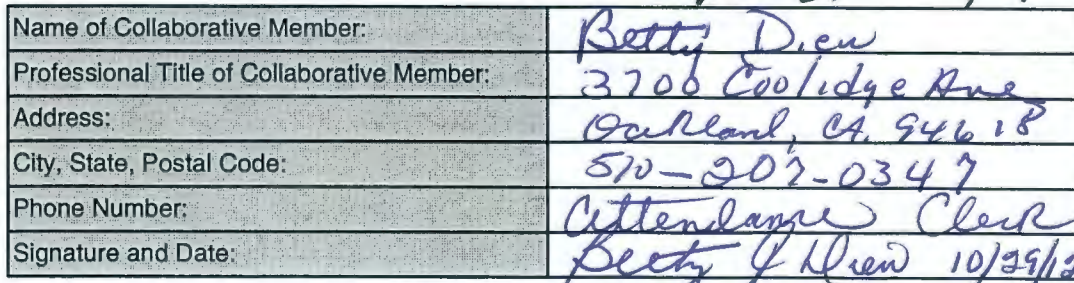 Name of Collaborative Member: Betty Dieu
Professional Title of Collaborative Member: 3700 Coolidge Ave
Address: Oakland, CA. 94618
City, State, Postal Code: 510-207-0347
Phone Number: Attendance Clerk
Signature and Date: Betty J Dieu 10/29/12